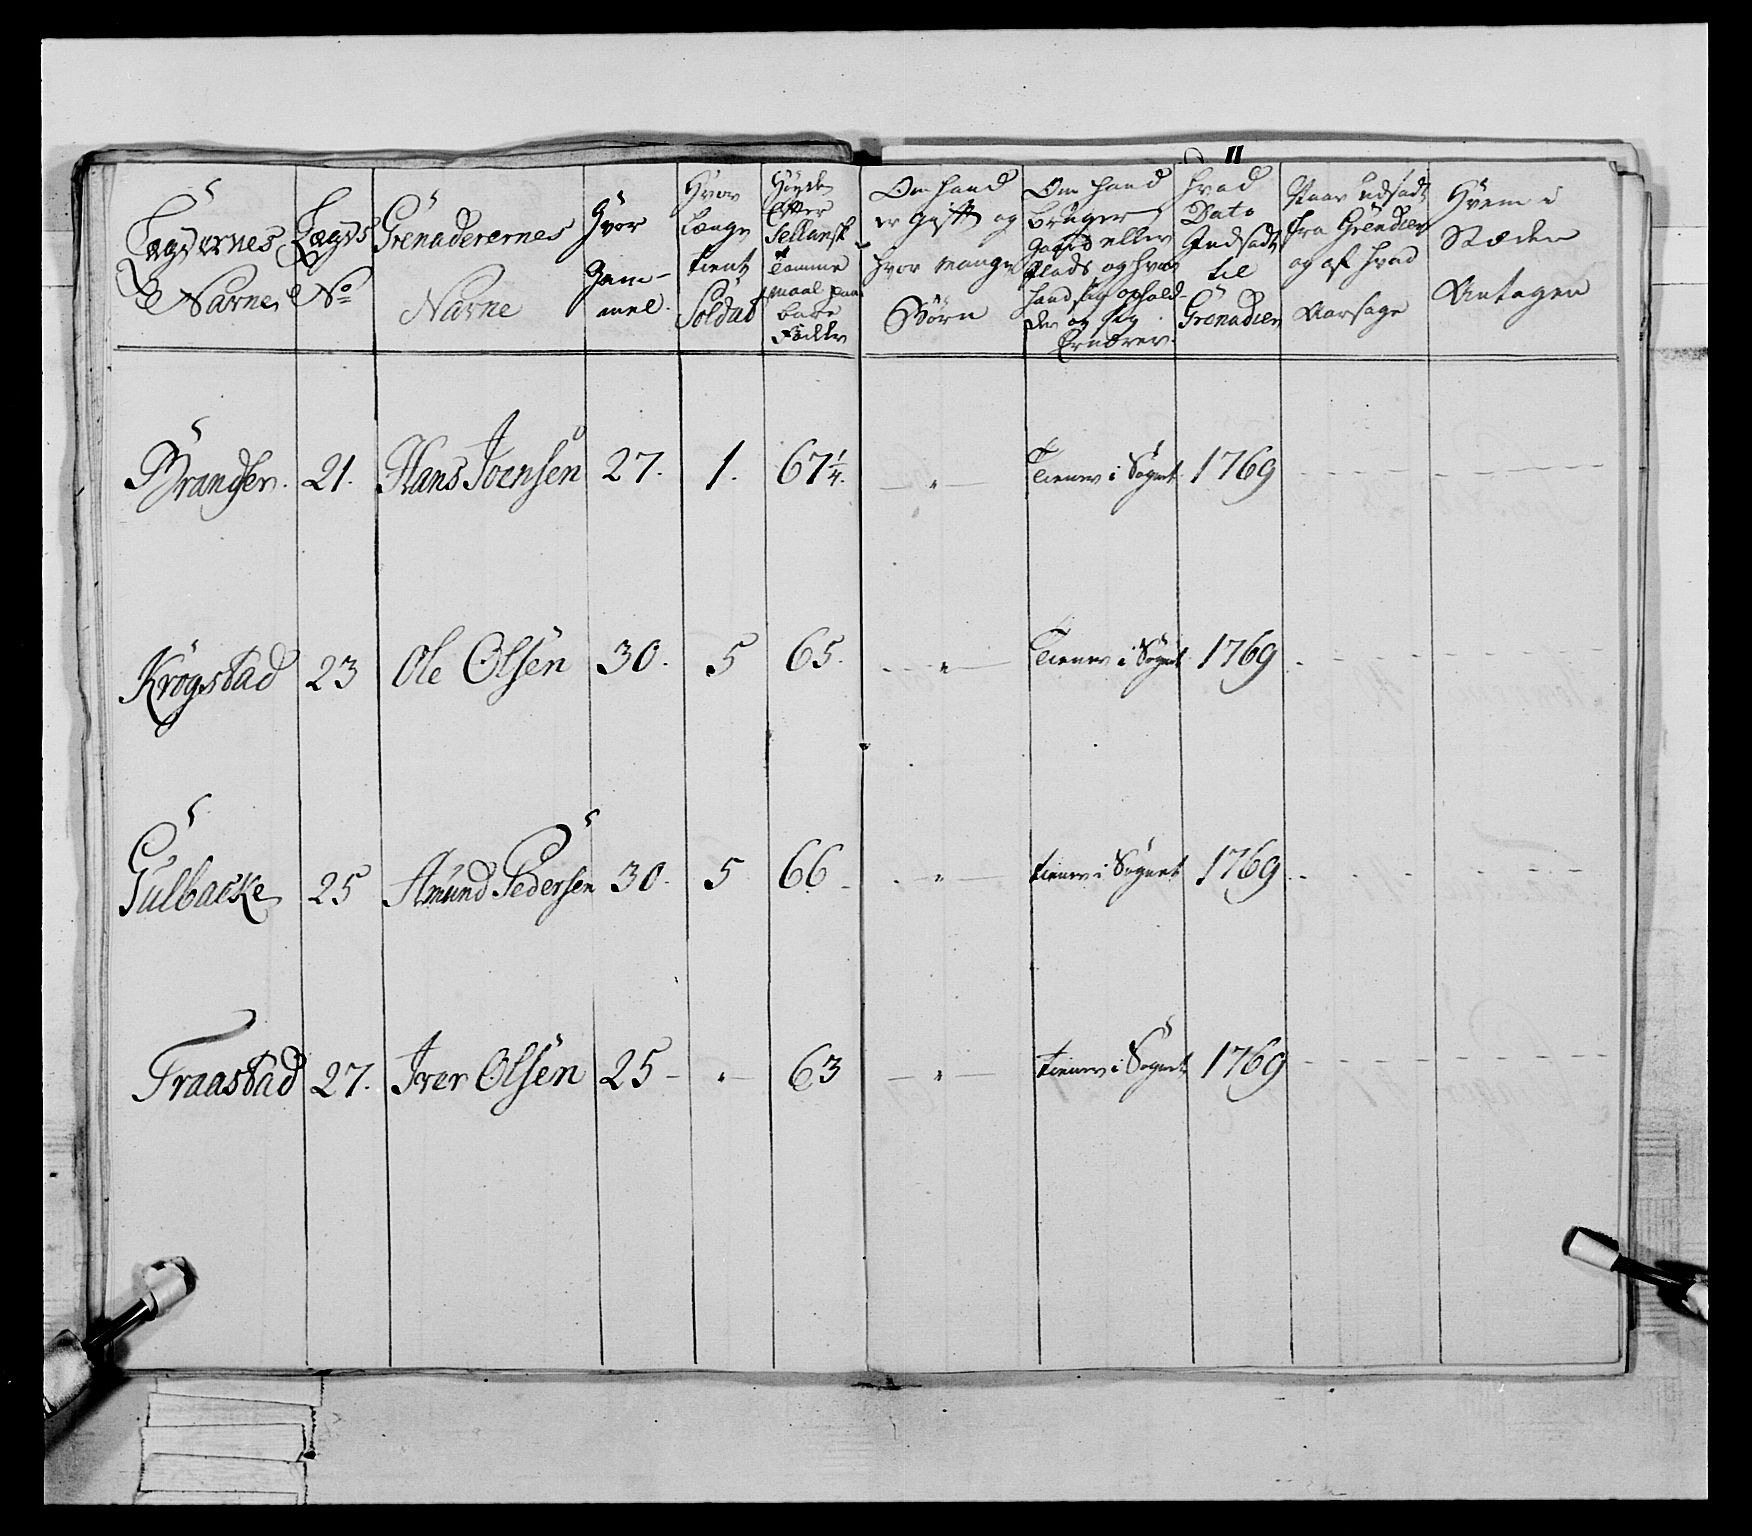 11
Lægdernes Nafne
Lægds No
Grenaderernes Nafne
Hvor Gam-mel.
Hvor Længe tient Soldat
Høyden Efter Sellansk Tomme maal paa bare Födder
Om hand er gift og hvor mange Börn
Om hand bruger Gaard eller Plads og hvor hand sig ophold-der og sig Ernærer.
Hvad Dato Indsadt til Grenadeer
Naar udsadt fra Grendeer og af hvad Aarsage
Hvem i Stæden Antagen
Brandser. 21. Hans Joensen 27. 1. 67 1/4. — " — Tiener i Sognet 1769
Krogstad 23 Ole Olsen 30. 5 65. — " — Tiener i Sognet 1769
Gulbacke 25 Amund Pedersen 30. 5 66 — " — tiener i Sognet 1769
Fraastad 27. Iver Olsen 25 — " — 63 — " — tiener i Sognet 1769